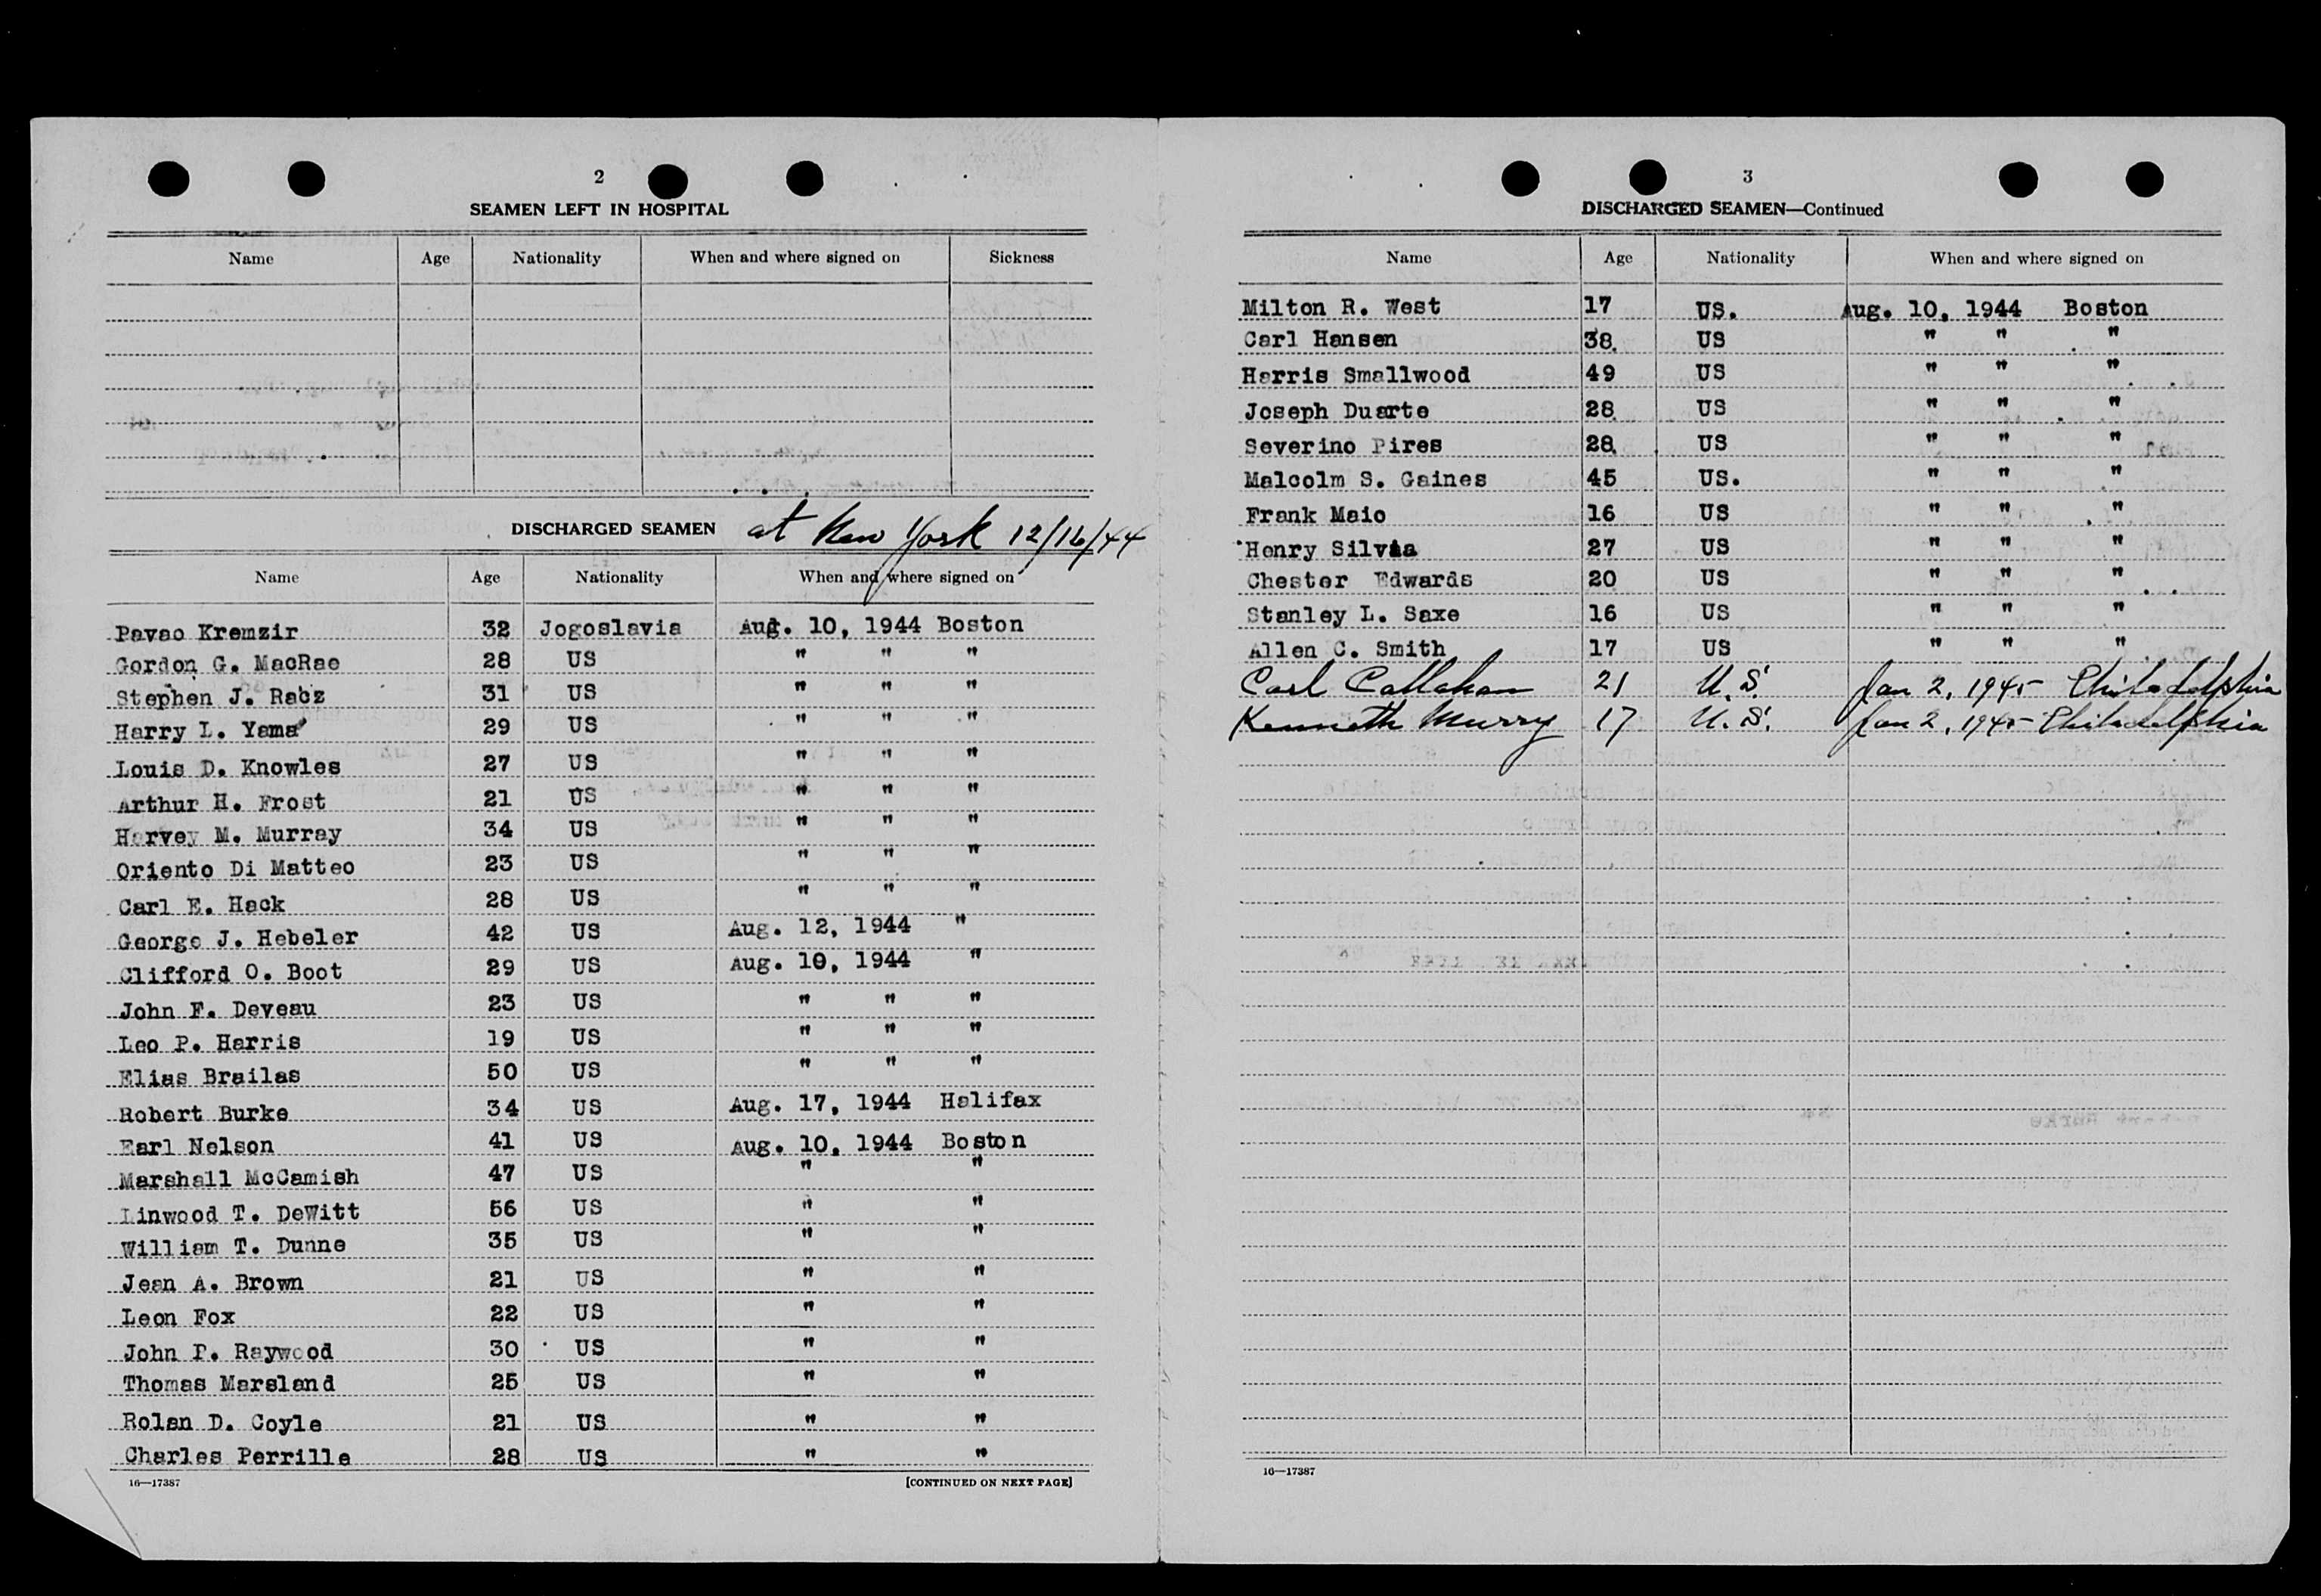 2
SEAMEN LEFT IN HOSPITAL
Name Age Nationality When and where signed on Sickness
DISCHARGED SEAMEN at New York 12/16/44
Name Age Nationality When and where signed on
Pavao Kremzir 32 Jogoslavia Aug. 10, 1944 Boston
Gordon G. MacRae 28 US " " "
Stephen J. Rabz 31 US " " "
Harry L. Yama 29 US " " "
Louis D. Knowles 27 US " " "
Arthur H. Frost 21 US " " "
Harvey M. Murray 34 US " " "
Oriento Di Matteo 23 US " " "
Carl E. Hack 28 US " " "
George J. Hebeler 42 US Aug. 12, 1944 "
Clifford O. Boot 29 US Aug. 10, 1944 "
John F. Deveau 23 US " " "
Leo P. Harris 19 US " " "
Elias Brailas 50 US " " "
Robert Burke 34 US Aug. 17, 1944 Halifax
Earl Nelson 41 US Aug. 10, 1944 Boston
Marshall McCamish 47 US " "
Linwood T. DeWitt 56 US " "
William T. Dunne 35 US " "
Jean A. Brown 21 US " "
Leon Fox 22 US " "
John P. Raywood 30 US " "
Thomas Marsland 25 US " "
Rolan D. Coyle 21 US " "
Charles Perrille 28 US " "
16—17387 [CONTINUED ON NEXT PAGE]
3
DISCHARGED SEAMEN—Continued
Name Age Nationality When and where signed on
Milton R. West 17 US. Aug. 10, 1944 Boston
Carl Hansen 38 US " " "
Harris Smallwood 49 US " " "
Joseph Duarte 28 US " " "
Severino Pires 28 US " " "
Malcolm S. Gaines 45 US. " " "
Frank Maio 16 US " " "
Henry Silvia 27 US " " "
Chester Edwards 20 US " " "
Stanley L. Saxe 16 US " " "
Allen C. Smith 17 US " " "
Carl Callahan 21 U.S. Jan 2, 1945 Philadelphia
Kenneth Murry 17 U.S. Jan 2, 1945 Philadelphia
16—17387